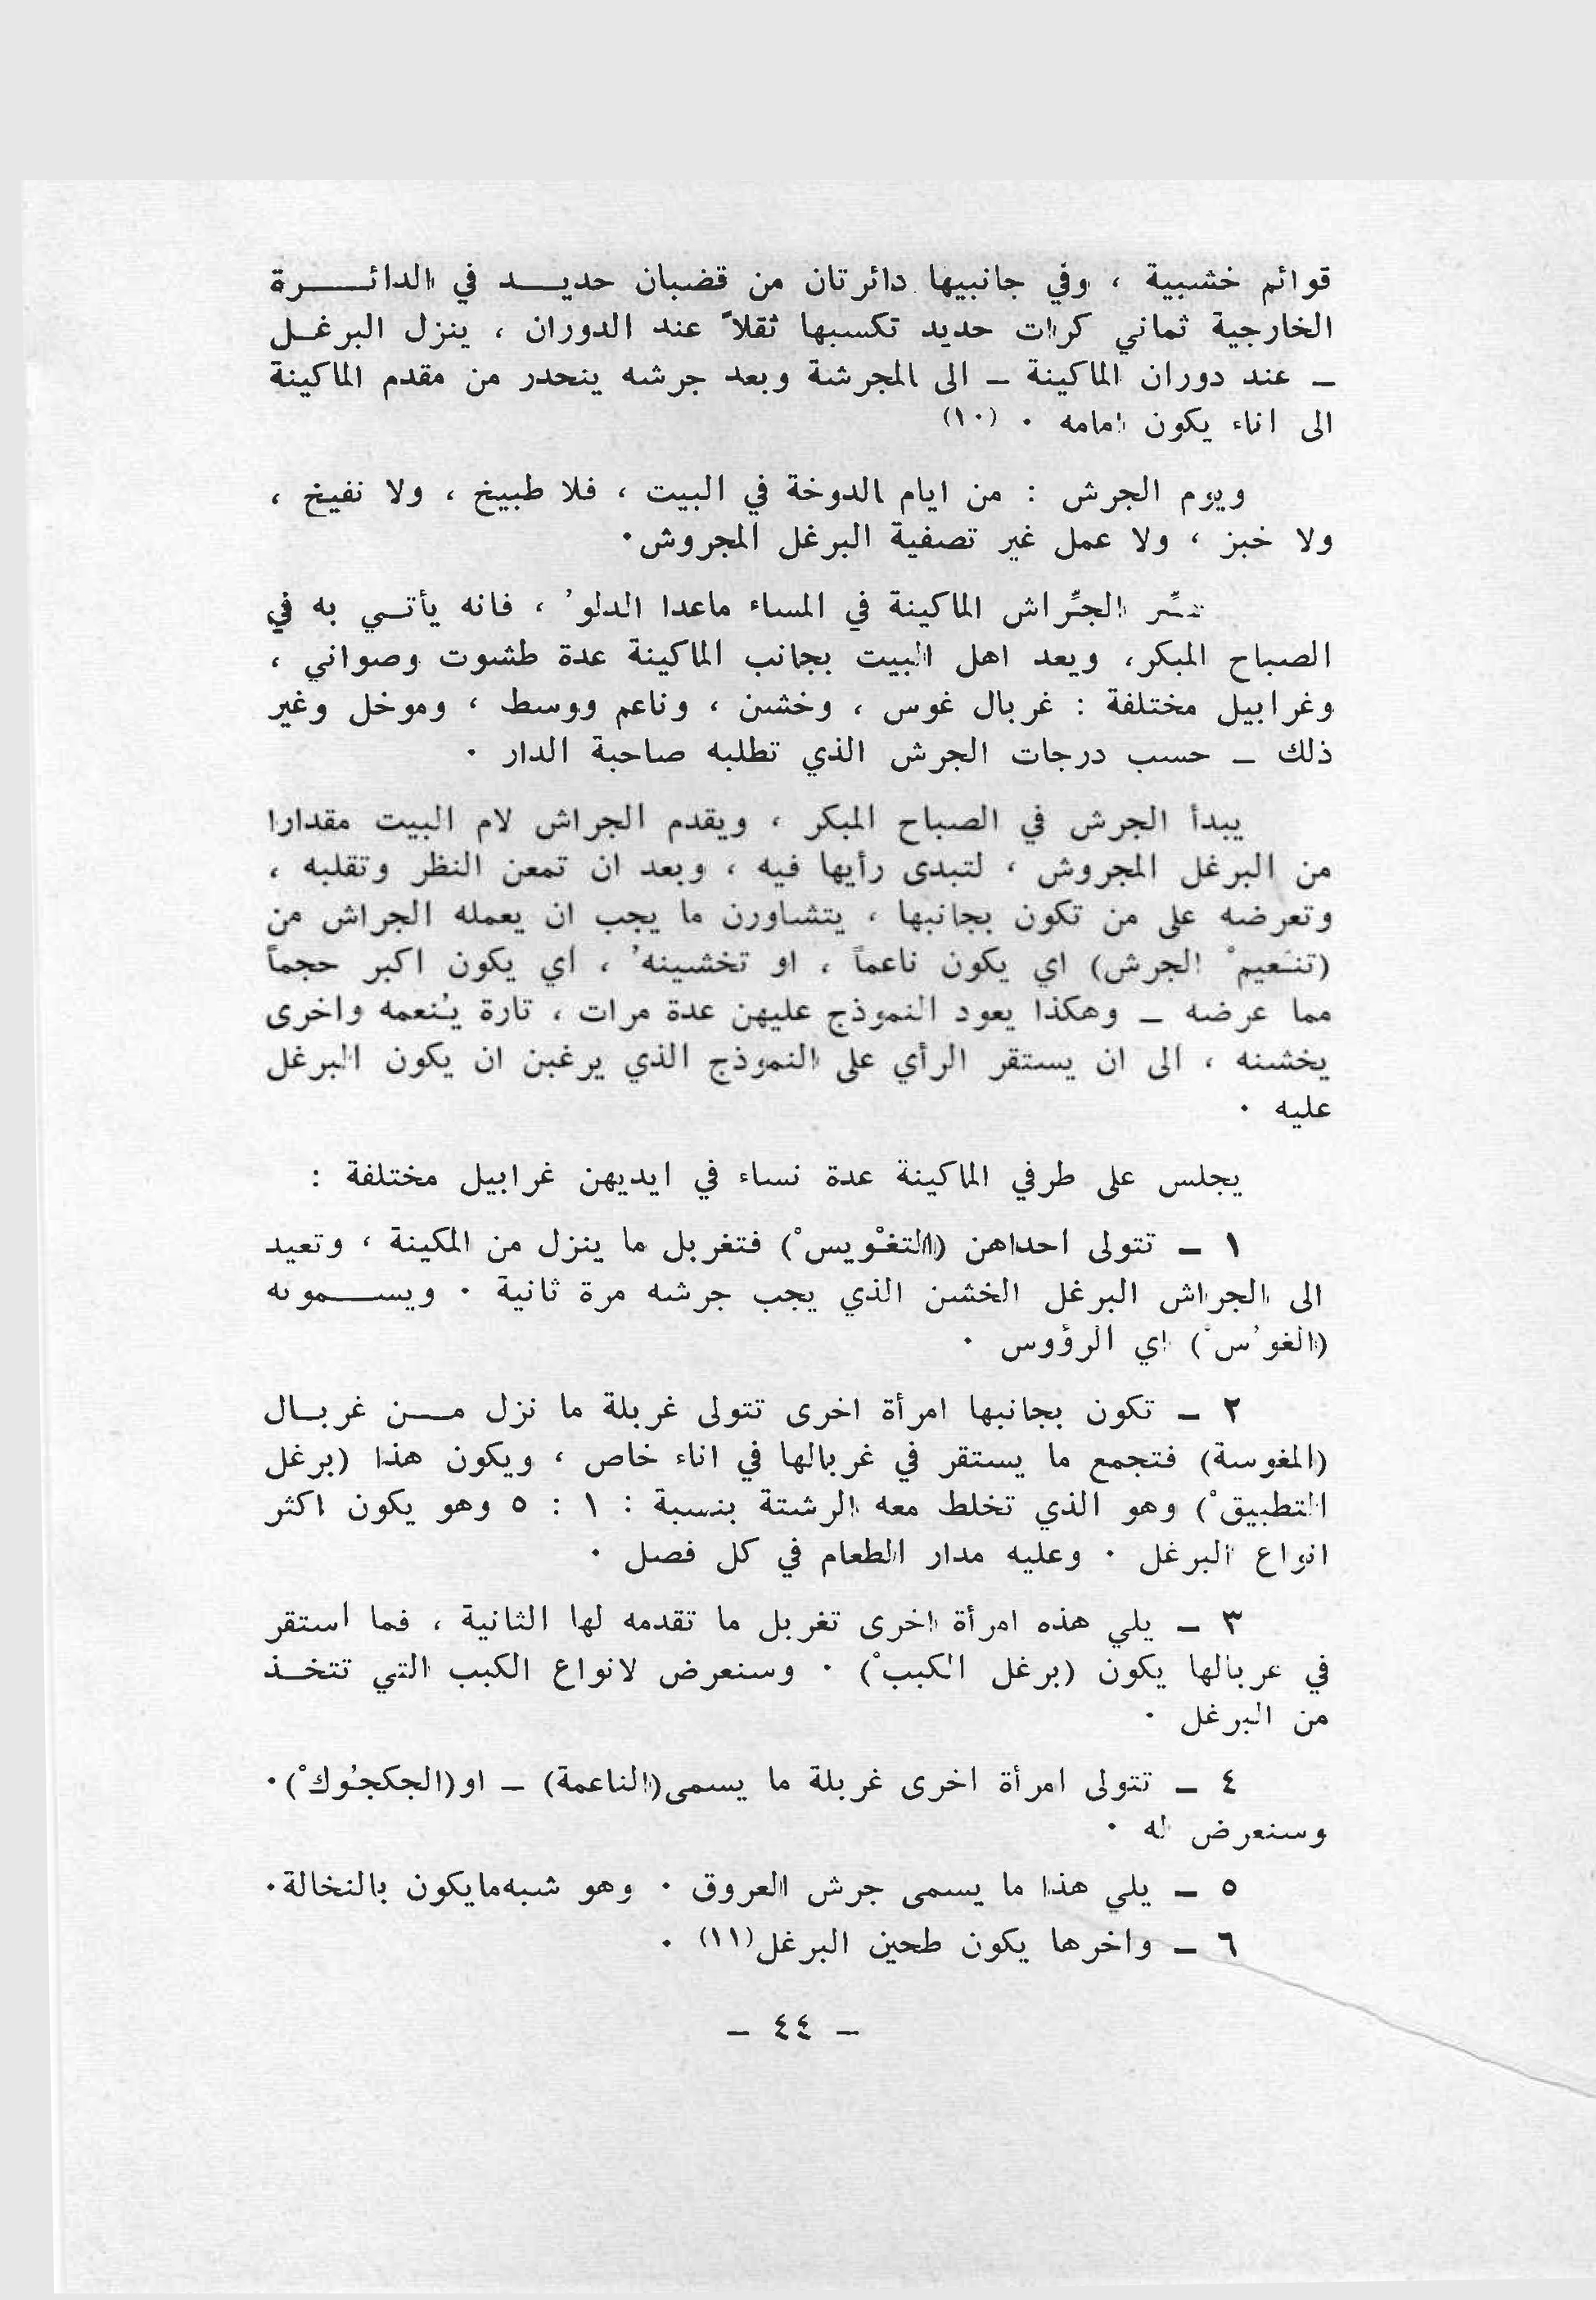 قوائم خشبية ، وفي جانبيها دائرتان من قضبان حديد في الدائرة
الخارجية ثماني كرات حديد تكسبها ثقلاً عند الدوران ، ينزل البرغل
ـ عند دوران الماكينة ـ الى المجرشة وبعد جرشه ينحدر من مقدم الماكينة
الى اناء يكون امامه ٠ (١٠)
ويوم الجرش : من ايام الدوخة في البيت ، فلا طبيخ ، ولا نفيخ ،
ولا خبز ، ولا عمل غير تصفية البرغل المجروش٠
الجرّاش الماكينة في المساء ماعدا الدلوُ ، فانه يأتي به في
الصباح المبكر، ويعد اهل البيت بجانب الماكينة عدة طشوت وصواني ،
وغرابيل مختلفة : غربال غوس ، وخشن ، وناعم ووسط ، وموخل وغير
ذلك ـ حسب درجات الجرش الذي تطلبه صاحبة الدار ٠
يبدأ الجرش في الصباح المبكر ، ويقدم الجراش لام البيت مقدارا
من البرغل المجروش ، لتبدى رأيها فيه ، وبعد ان تمعن النظر وتقلبه ،
وتعرضه على من تكون بجانبها ، يتشاورن ما يجب ان يعمله الجراش من
(تنعيمْ الجرش) اي يكون ناعماً ، او تخشينهُ ، اي يكون اكبر حجماً
مما عرضه ـ وهكذا يعود النموذج عليهن عدة مرات ، تارة يُنعمه واخرى
يخشنه ، الى ان يستقر الرأي على النموذج الذي يرغبن ان يكون البرغل
عليه ٠
يجلس على طرفي الماكينة عدة نساء في ايديهن غرابيل مختلفة :
١ ـ تتولى احداهن (التغْويسْ) فتغربل ما ينزل من المكينة ، وتعيد
الى الجراش البرغل الخشن الذي يجب جرشه مرة ثانية ٠ ويسمونه
(الغوُسْ) اي الرؤوس ٠
٢ ـ تكون بجانبها امرأة اخرى تتولى غربلة ما نزل من غربال
(المغوسة) فتجمع ما يستقر في غربالها في اناء خاص ، ويكون هذا (برغل
التطبيقْ) وهو الذي تخلط معه الرشتة بنسبة : ١ : ٥ وهو يكون اكثر
انواع البرغل ٠ وعليه مدار الطعام في كل فصل ٠
٣ ـ يلي هذه امرأة اخرى تغربل ما تقدمه لها الثانية ، فما استقر
في غربالها يكون (برغل الكببْ) ٠ وسنعرض لانواع الكبب التي تتخذ
من البرغل ٠
٤ ـ تتولى امرأة اخرى غربلة ما يسمى (الناعمة) ـ او (الجكجُوكْ)٠
وسنعرض له ٠
٥ ـ يلي هذا ما يسمى جرش العروق ٠ وهو شبه مايكون بالنخالة٠
٦ ـ واخرها يكون طحين البرغل(١١) ٠
ـ ٤٤ ـ